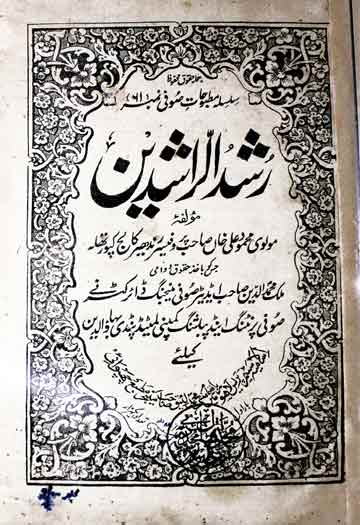 جملہ حقوق محفوظ
سلسلہ مطبوعات صوفی نمبر (۶۱)
رشد الراشدین
مؤلفہ
مولوی محمود علی خان صاحب پروفیسر رندھیر کالج کپورتھلہ
جس کو باخذ حقوق دوامی
ملک محمد الدین صاحب ایڈیٹر صوفی مینیجنگ ڈائرکٹر نے
صوفی پرنٹنگ اینڈ پبلشنگ کمپنی لمیٹڈ پنڈی بہاؤالدین
کیلئے